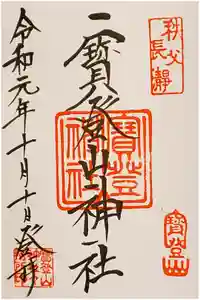 秩父
長瀞
寳登山神社
寳登山
神社
寳登山
令和元年十月十日登拝